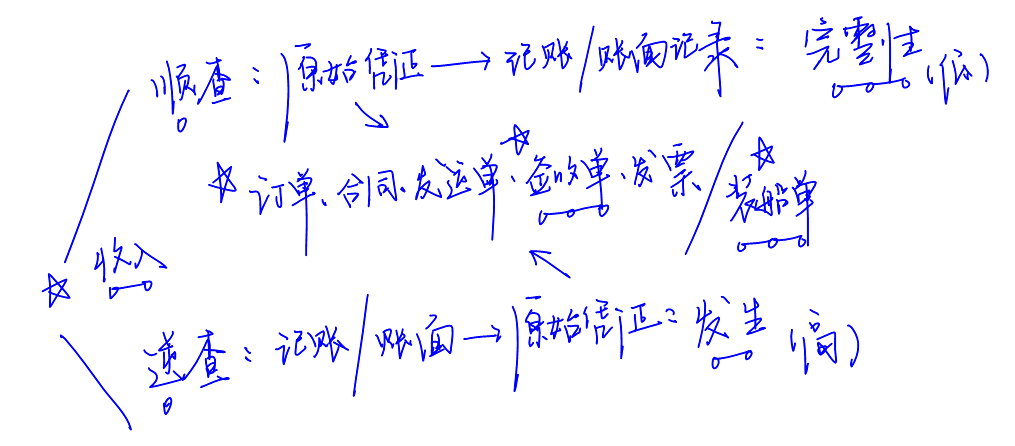 顺查：原始凭证→记账/账面记录：完整性（低）
☆订单、合同、发运单、☆签收单、发票/☆装船单
☆收入
逆查：记账/账面→原始凭证：发生（高）